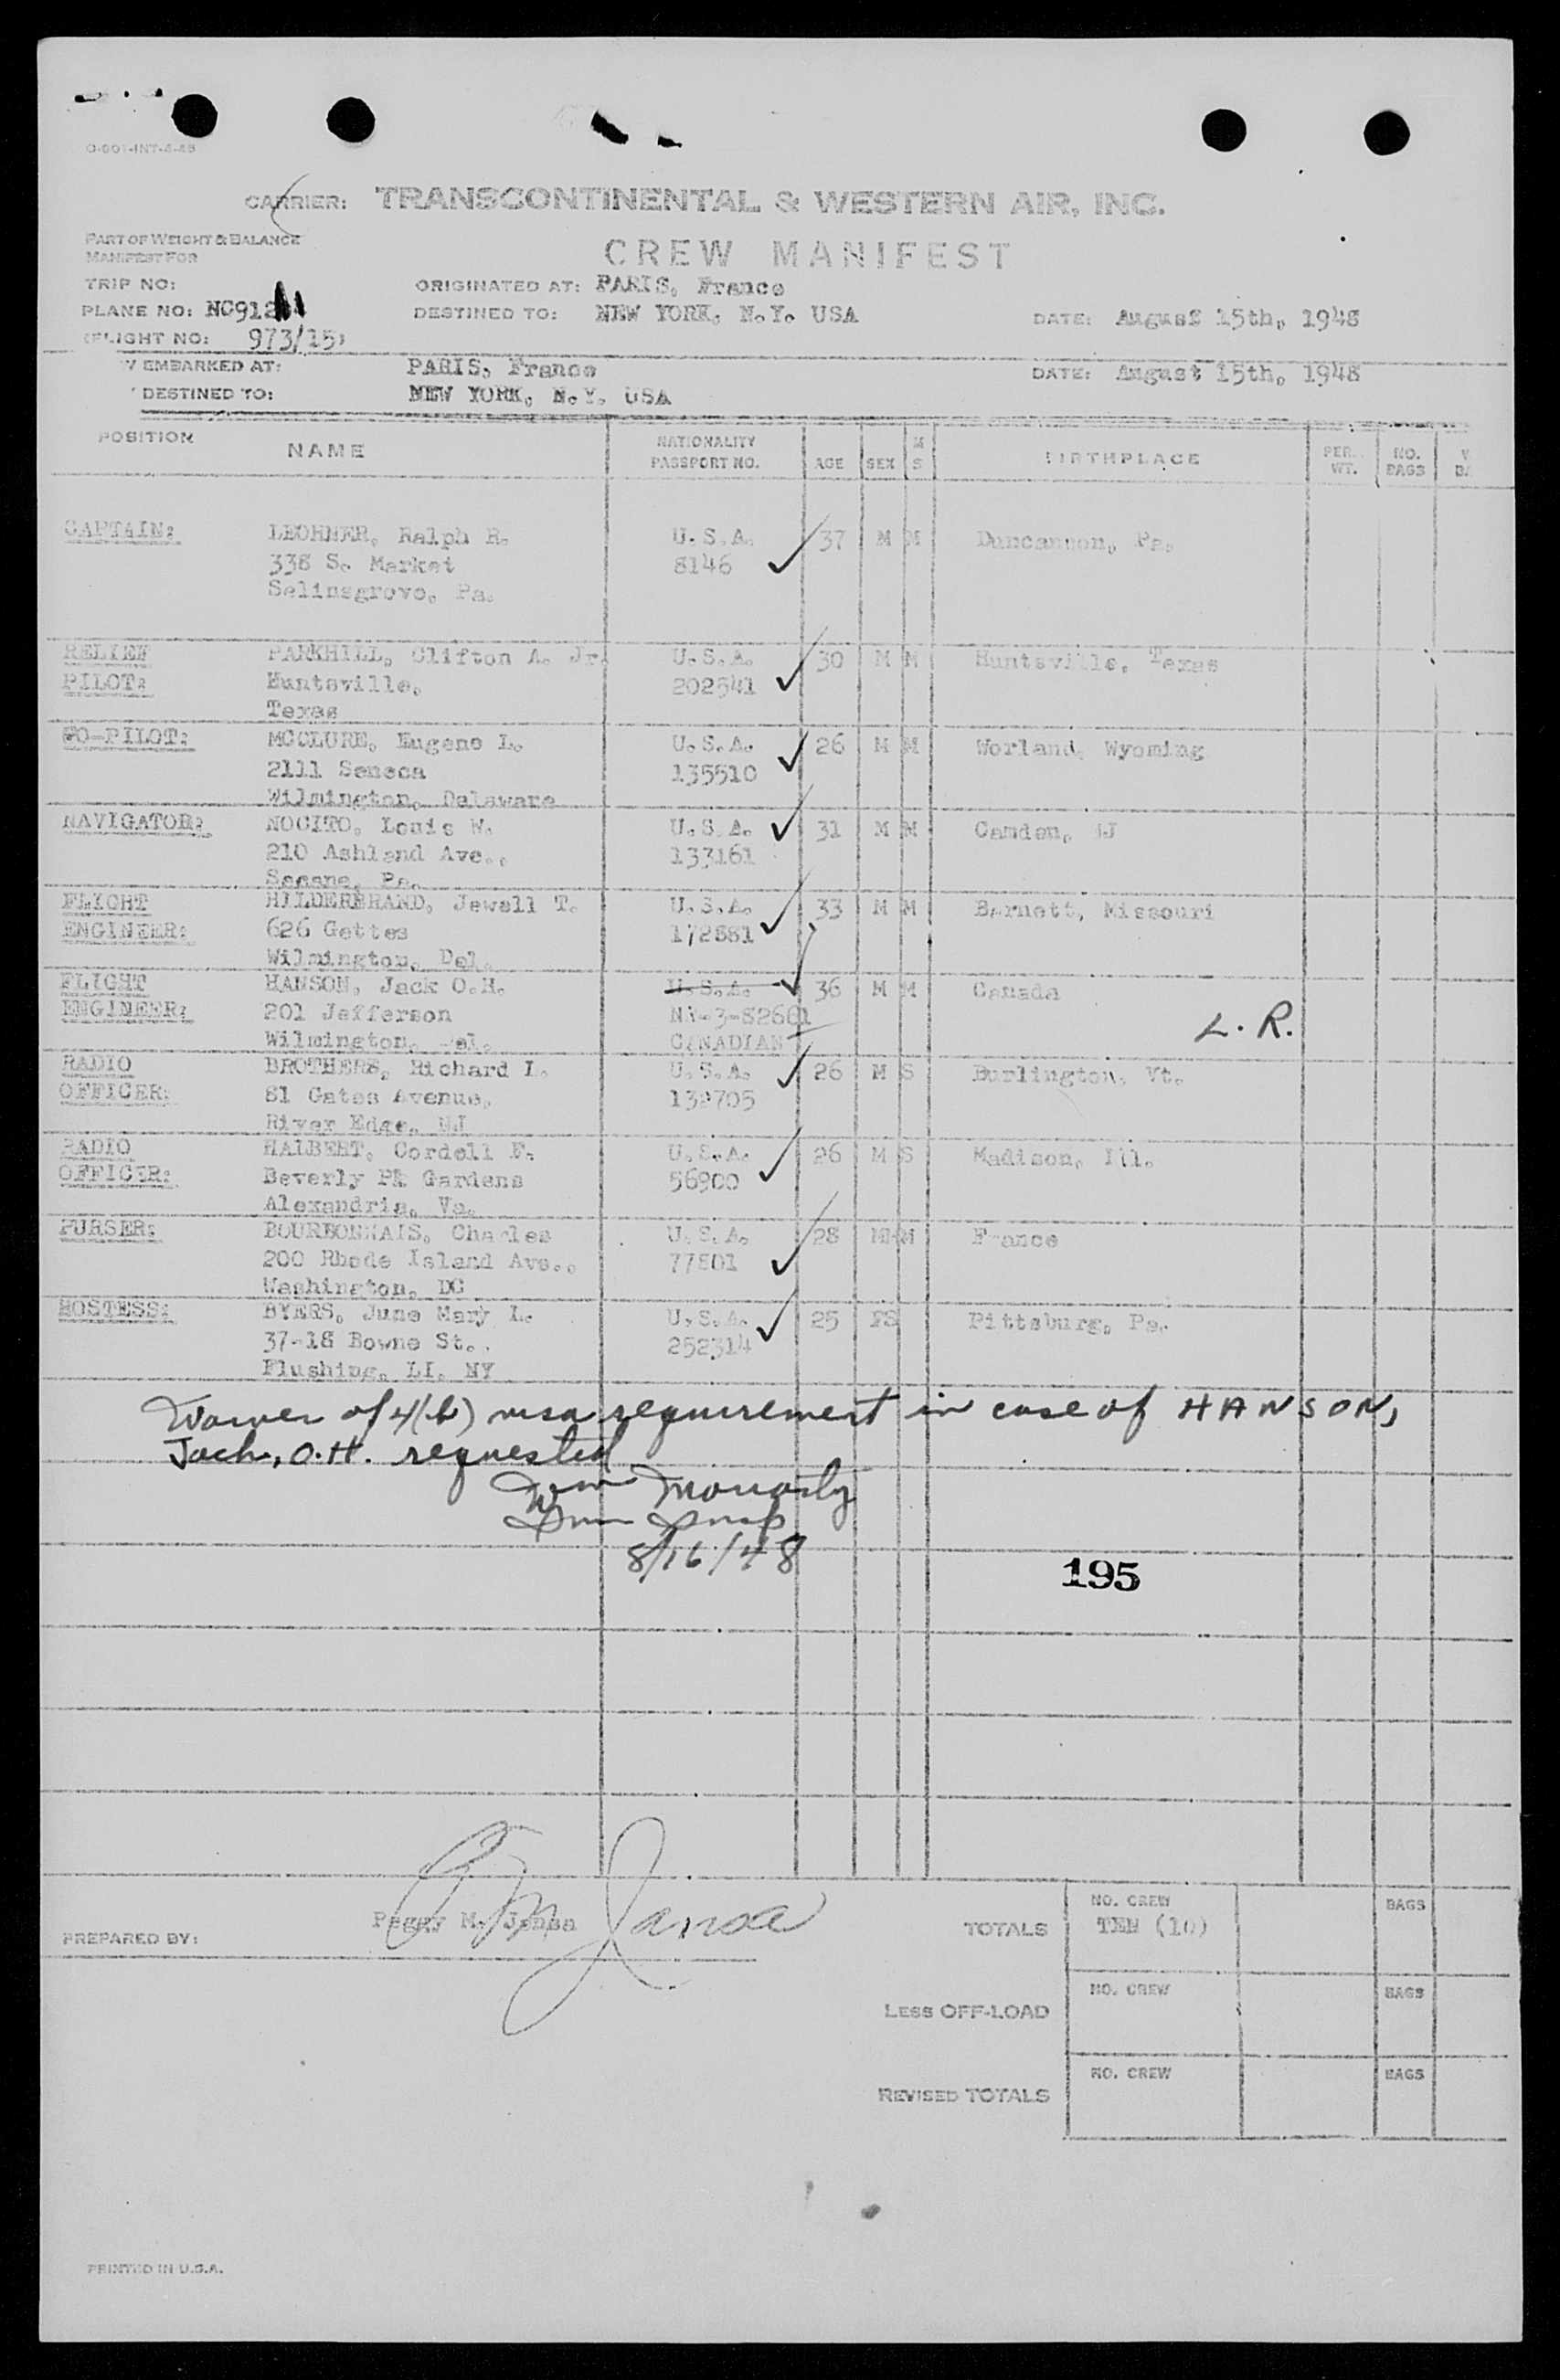 O-601-INT-4-48
CARRIER: TRANSCONTINENTAL & WESTERN AIR, INC.
PART OF WEIGHT & BALANCE
MANIFEST FOR
CREW MANIFEST
TRIP NO:
ORIGINATED AT: PARIS, France
PLANE NO:
DESTINED TO: NEW YORK, N.Y. USA
DATE: August 15th, 1948
FLIGHT NO: 973/15
EMBARKED AT: PARIS, France DATE: August 15th, 1948
DESTINED TO: NEW YORK, N.Y. USA
POSITION NAME NATIONALITY PASSPORT NO. AGE SEX M S BIRTHPLACE PER. WT. NO. BAGS
CAPTAIN: LEOHNER, Ralph R. U.S.A. 37 M M Duncannon, Pa.
338 S. Market 8146
Selinsgrove, Pa.
RELIEF PARKHILL, Clifton A. Jr. U.S.A. 30 M M Huntsville, Texas
PILOT: Huntsville, 202541
Texas
CO-PILOT: MCCLURE, Eugene L. U.S.A. 26 M M Worland, Wyoming
2111 Seneca 135510
Wilmington, Delaware
NAVIGATOR: NOCITO, Louis W. U.S.A. 31 M M Camden, NJ
210 Ashland Ave., 133161
Secane, Pa.
FLIGHT HILDERBRAND, Jewell T. U.S.A. 33 M M Barnett, Missouri
ENGINEER: 626 Gettes 172881
Wilmington, Del.
FLIGHT HANSON, Jack O.H. U.S.A. 36 M M Canada
ENGINEER: 201 Jefferson L. R.
Wilmington, Del. CANADIAN
RADIO BROTHERS, Richard I. U.S.A. 26 M S Burlington, Vt.
OFFICER: 81 Gates Avenue,
River Edge, NJ
RADIO HALBERT, Cordell F. U.S.A. 26 M S Madison, Ill.
OFFICER: Beverly Pk Gardens 56900
Alexandria, Va.
PURSER: BOURBONNAIS, Charles U.S.A. 28 M M France
200 Rhode Island Ave., 77801
Washington, DC
HOSTESS: BYERS, June Mary L. U.S.A. 25 F S Pittsburg, Pa.
37-18 Bowne St., 252314
Flushing, LI, NY
Waiver of 4(b) visa requirement in case of HANSON,
Jack, O.H. requested
Wm Moriarty
Imm Insp
8/16/48
195
Peggy M. Jansa
PREPARED BY:
TOTALS NO. CREW TEN (10) BAGS
LESS OFF-LOAD NO. CREW BAGS
REVISED TOTALS NO. CREW BAGS
PRINTED IN U.S.A.